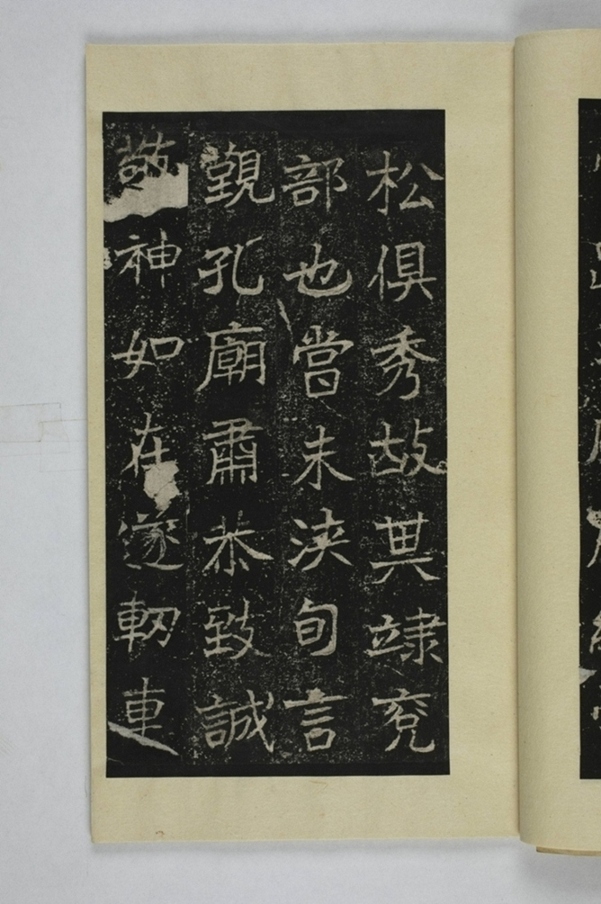 松俱秀故其竦兗
部也嘗未浹旬言
覲孔廟肅恭致誠
敬神如在遂軔車